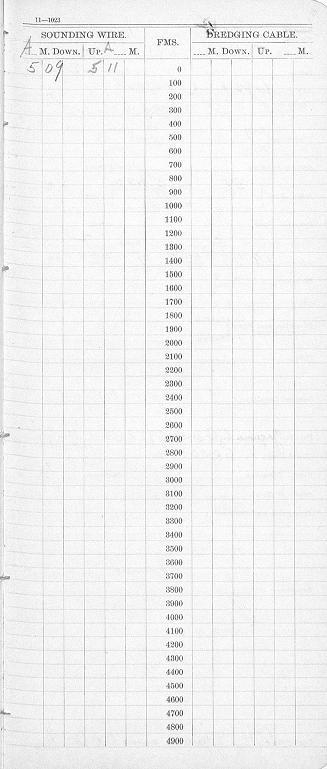 11—1023
SOUNDING WIRE. FMS. DREDGING CABLE.
A M. DOWN. UP. A M. M. DOWN. UP. M.
5 09 5 11 0
100
200
300
400
500
600
700
800
900
1000
1100
1200
1300
1400
1500
1600
1700
1800
1900
2000
2100
2200
2300
2400
2500
2600
2700
2800
2900
3000
3100
3200
3300
3400
3500
3600
3700
3800
3900
4000
4100
4200
4300
4400
4500
4600
4700
4800
4900